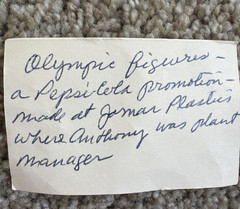 Olympic figures -
a Pepsi-Cola promotion -
made at Jamar Plastics
where Anthony was plant
manager